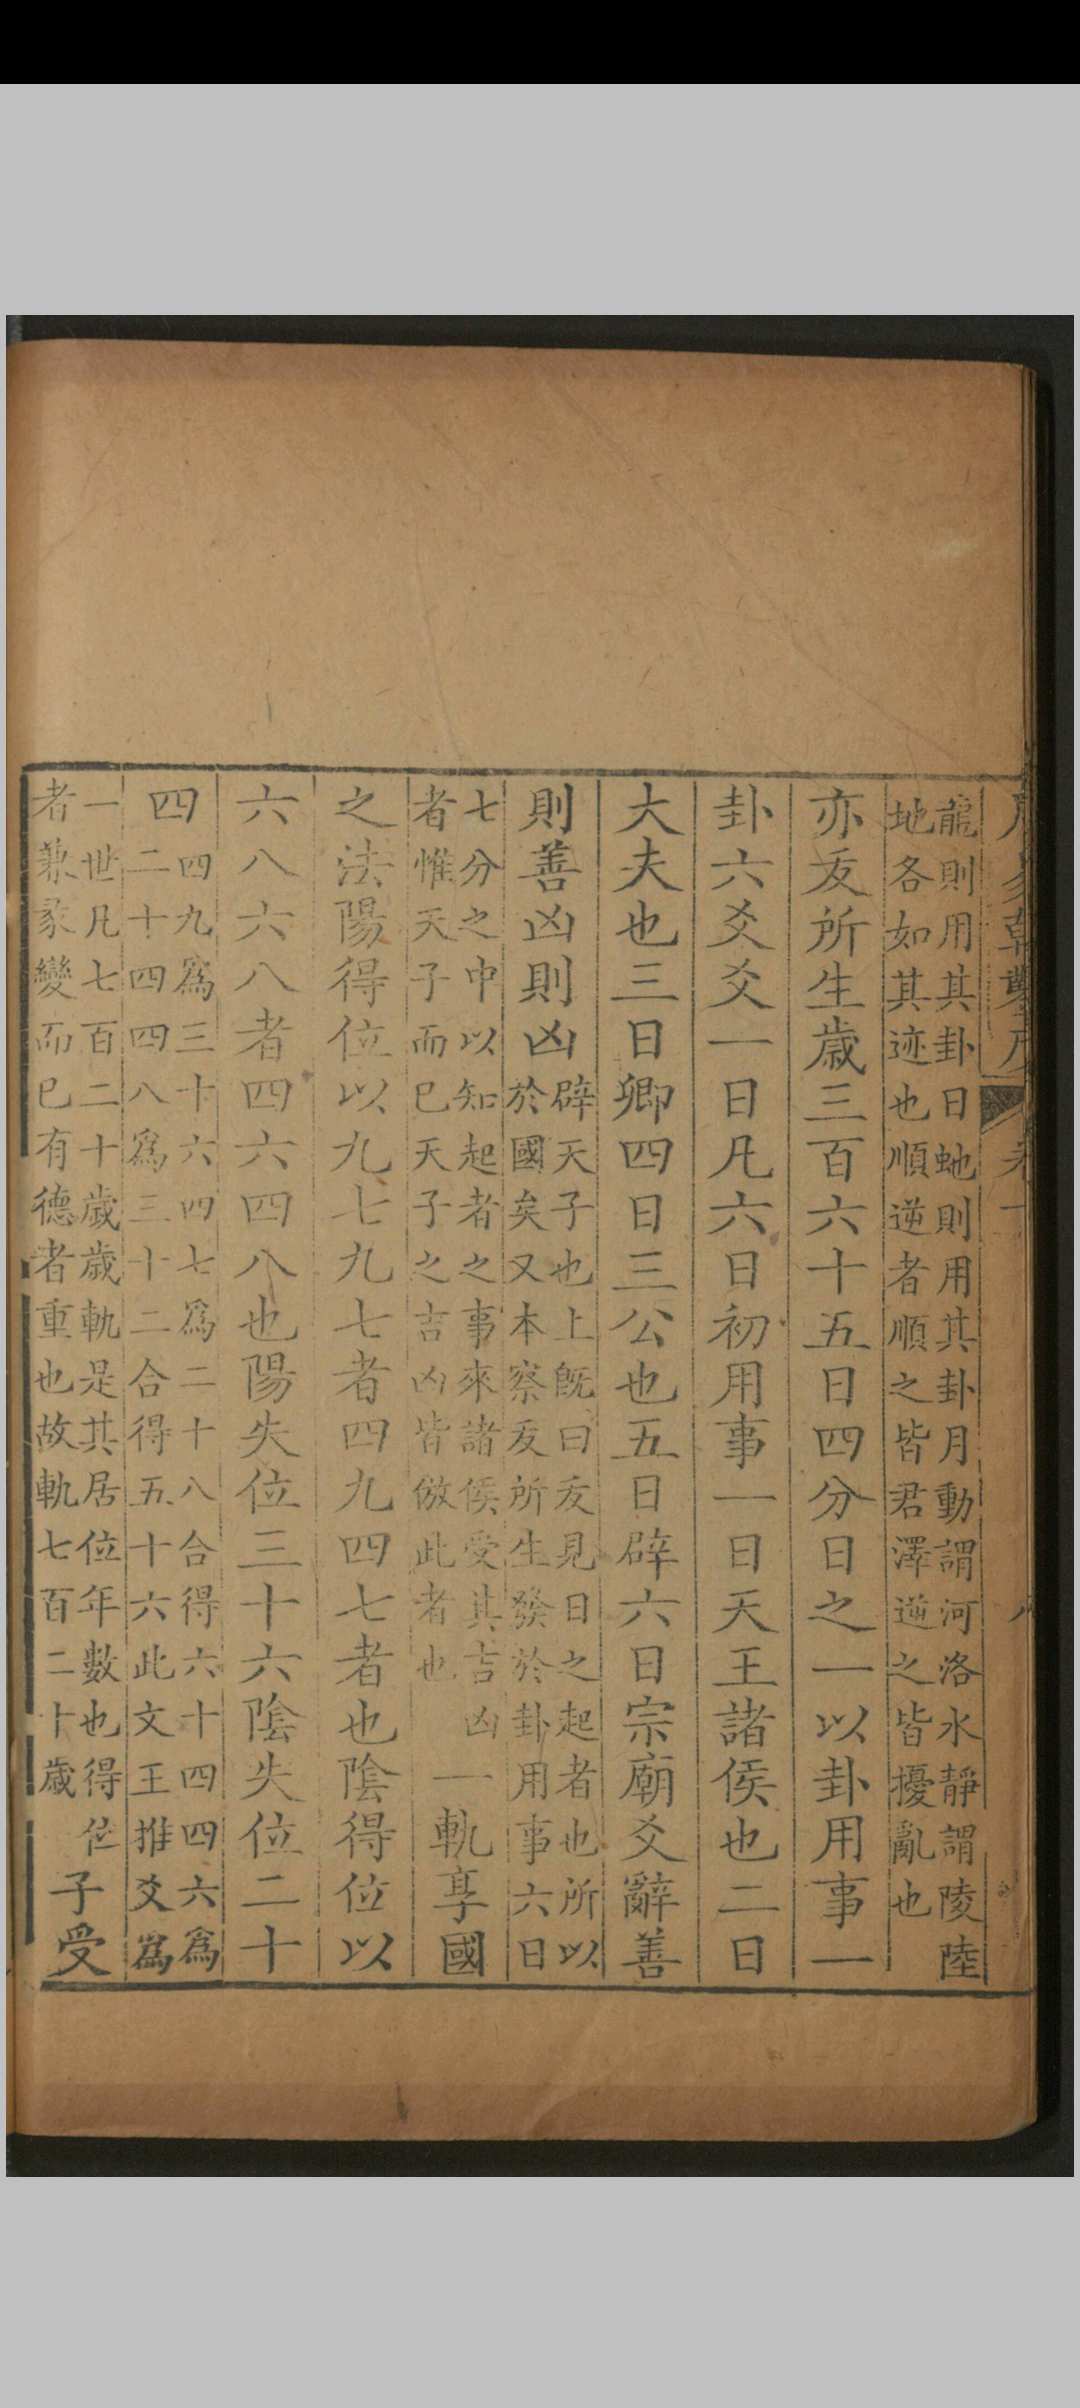 周易乾鑿度 卷下 八
龍則用其卦日虵則用其卦月動謂河洛水靜謂陵陸
地各如其迹也順逆者順之皆君澤逆之皆擾亂也
亦友所生歲三百六十五日四分日之一以卦用事一
卦六爻爻一日凡六日初用事一日天王諸侯也二日
大夫也三日卿四日三公也五日辟六日宗廟爻辭善
則善凶則凶
辟天子也上既曰友見日之起者也所以
於國矣又本察友所生發於卦用事六日
七分之中以知起者之事來諸侯受其吉凶
者惟天子而已天子之吉凶皆倣此者也
一軌享國
之法陽得位以九七九七者四九四七者也陰得位以
六八六八者四六四八也陽失位三十六陰失位二十
四
四九爲三十六四七爲二十八合得六十四四六爲
二十四四八爲三十二合得五十六此文王推爻爲
一世凡七百二十歲歲軌是其居位年數也得位
者兼彖變而已有德者重也故軌七百二十歲
子受